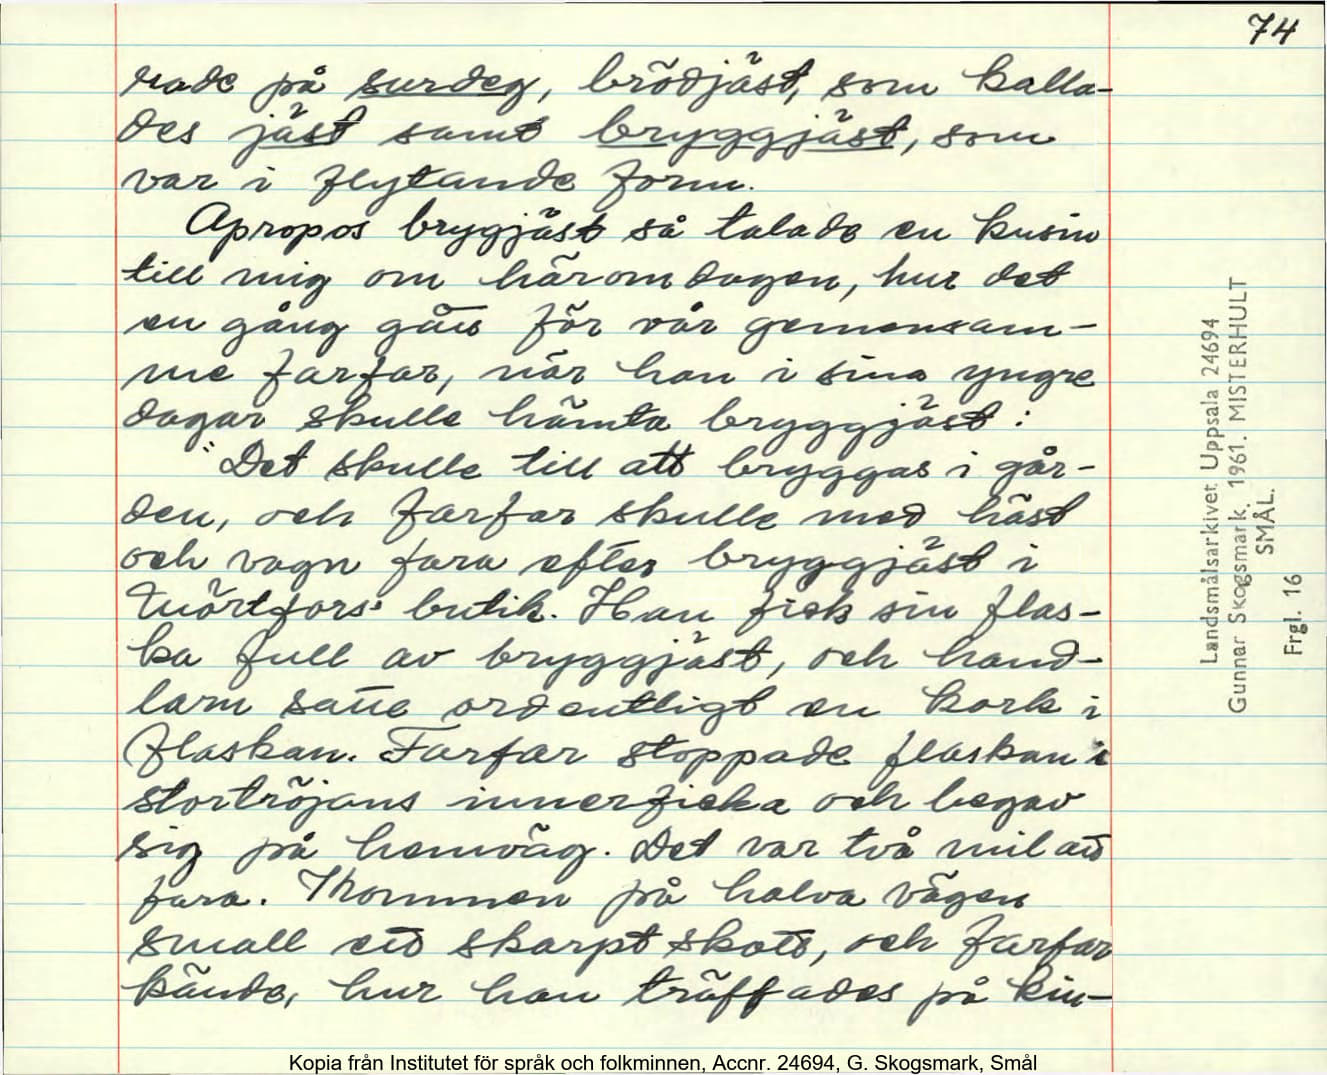 74
rade på surdeg, brödjäst, som kalla-
des jäst samt bryggjäst, som
var i flytande form.
Apropos brygjäst så talade en kusin
till mig om häromdagen, hur det
en gång gått för vår gemensam-
me farfar, när han i sina yngre
dagar skulle hämta bryggjäst:
"Det skulle till att bryggas i går-
den, och farfar skulle med häst
och vagn fara efter bryggjäst i
butik. Han fick sin flas-
ka full av bryggjäst, och hand-
larn satte ordentligt en kork i
flaskan. Farfar stoppade flaskan i
stortröjans innerficka och begav
sig på hemväg. Det var två mil att
fara. Kommen på halva vägen
small ett skarpt skott, och farfar
kände, hur han träffades på kin-
Landsmålsarkivet Uppsala 24694
Gunnar Skogsmark, 1961. MISTERHULT
SMÅL.
Frgl. 16
Kopia från Institutet för språk och folkminnen, Accnr. 24694, G. Skogsmark, Smål